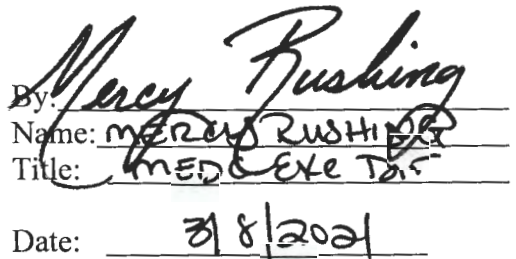 By: Mercy Rushing
Name: MERCY RUSHING
Title: MEDC EXC Dir
Date: 3/8/2021